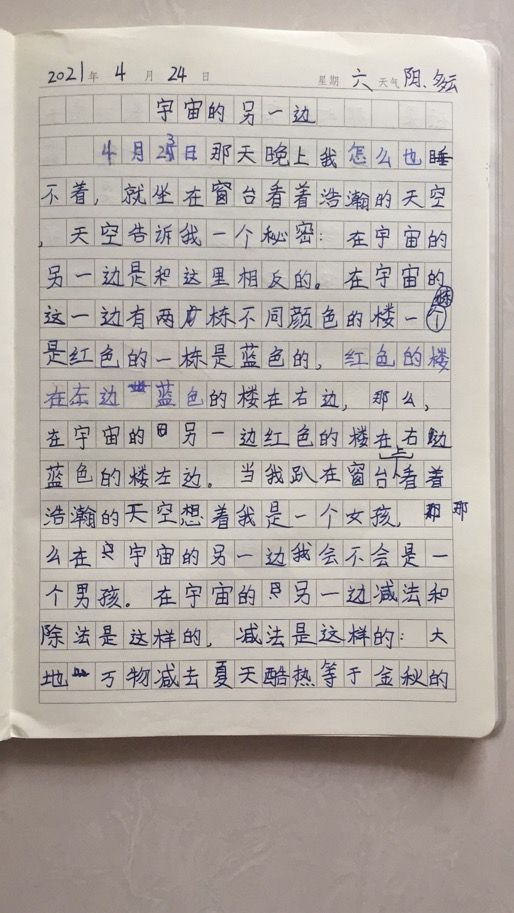 2021年 4月 24日 星期六 天气阴、多云
宇宙的另一边
4月23日那天晚上我怎么也睡
不着，就坐在窗台看着浩瀚的天空
，天空告诉我一个秘密：在宇宙的
另一边是和这里相反的。在宇宙的
这一边有两栋不同颜色的楼一栋
是红色的一栋是蓝色的，红色的楼
在左边蓝色的楼在右边，那么，
在宇宙的另一边红色的楼在右边
蓝色的楼左边。当我趴在窗台上看着
浩瀚的天空想着我是一个女孩，那
么在宇宙的另一边我会不会是一
个男孩。在宇宙的另一边减法和
除法是这样的，减法是这样的：大
地万物减去夏天酷热等于金秋的